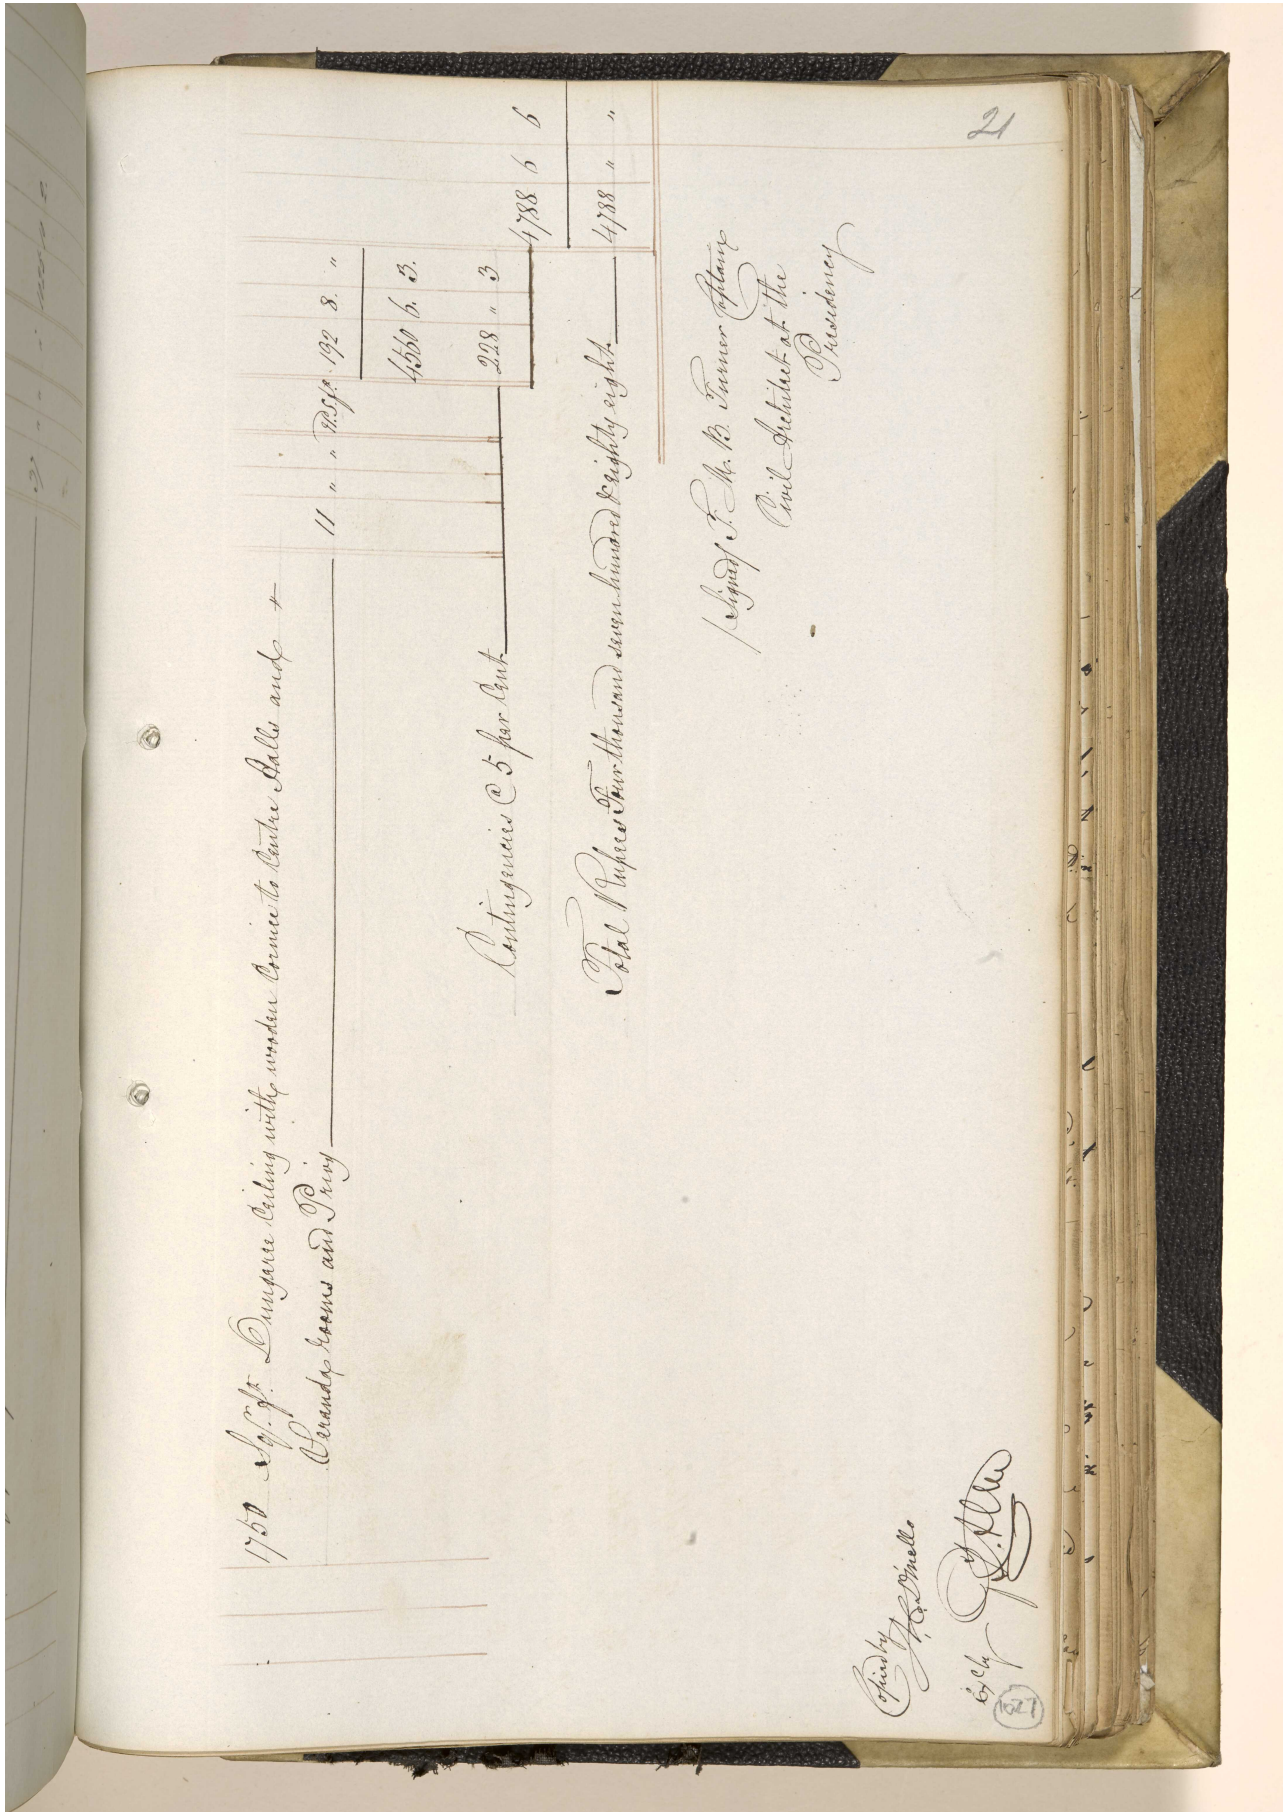 21
1750 Sqr. ft. Dungaree Ceiling with wooden Cornice to Centre Halls and +
Veranda rooms and Privy 11 " " Pr. S. ft. 192 8. "
4560 6. 3.
Contingencies @ 5 per Cent 228 " 3
4788 6 6
Total Rupees Four thousand seven hundred & eighty eight 4788 " "
/Signed/ F. M. B. Turner Captain
Civil Architect at the
Presidency
Copied by
D'Mello
Ex by